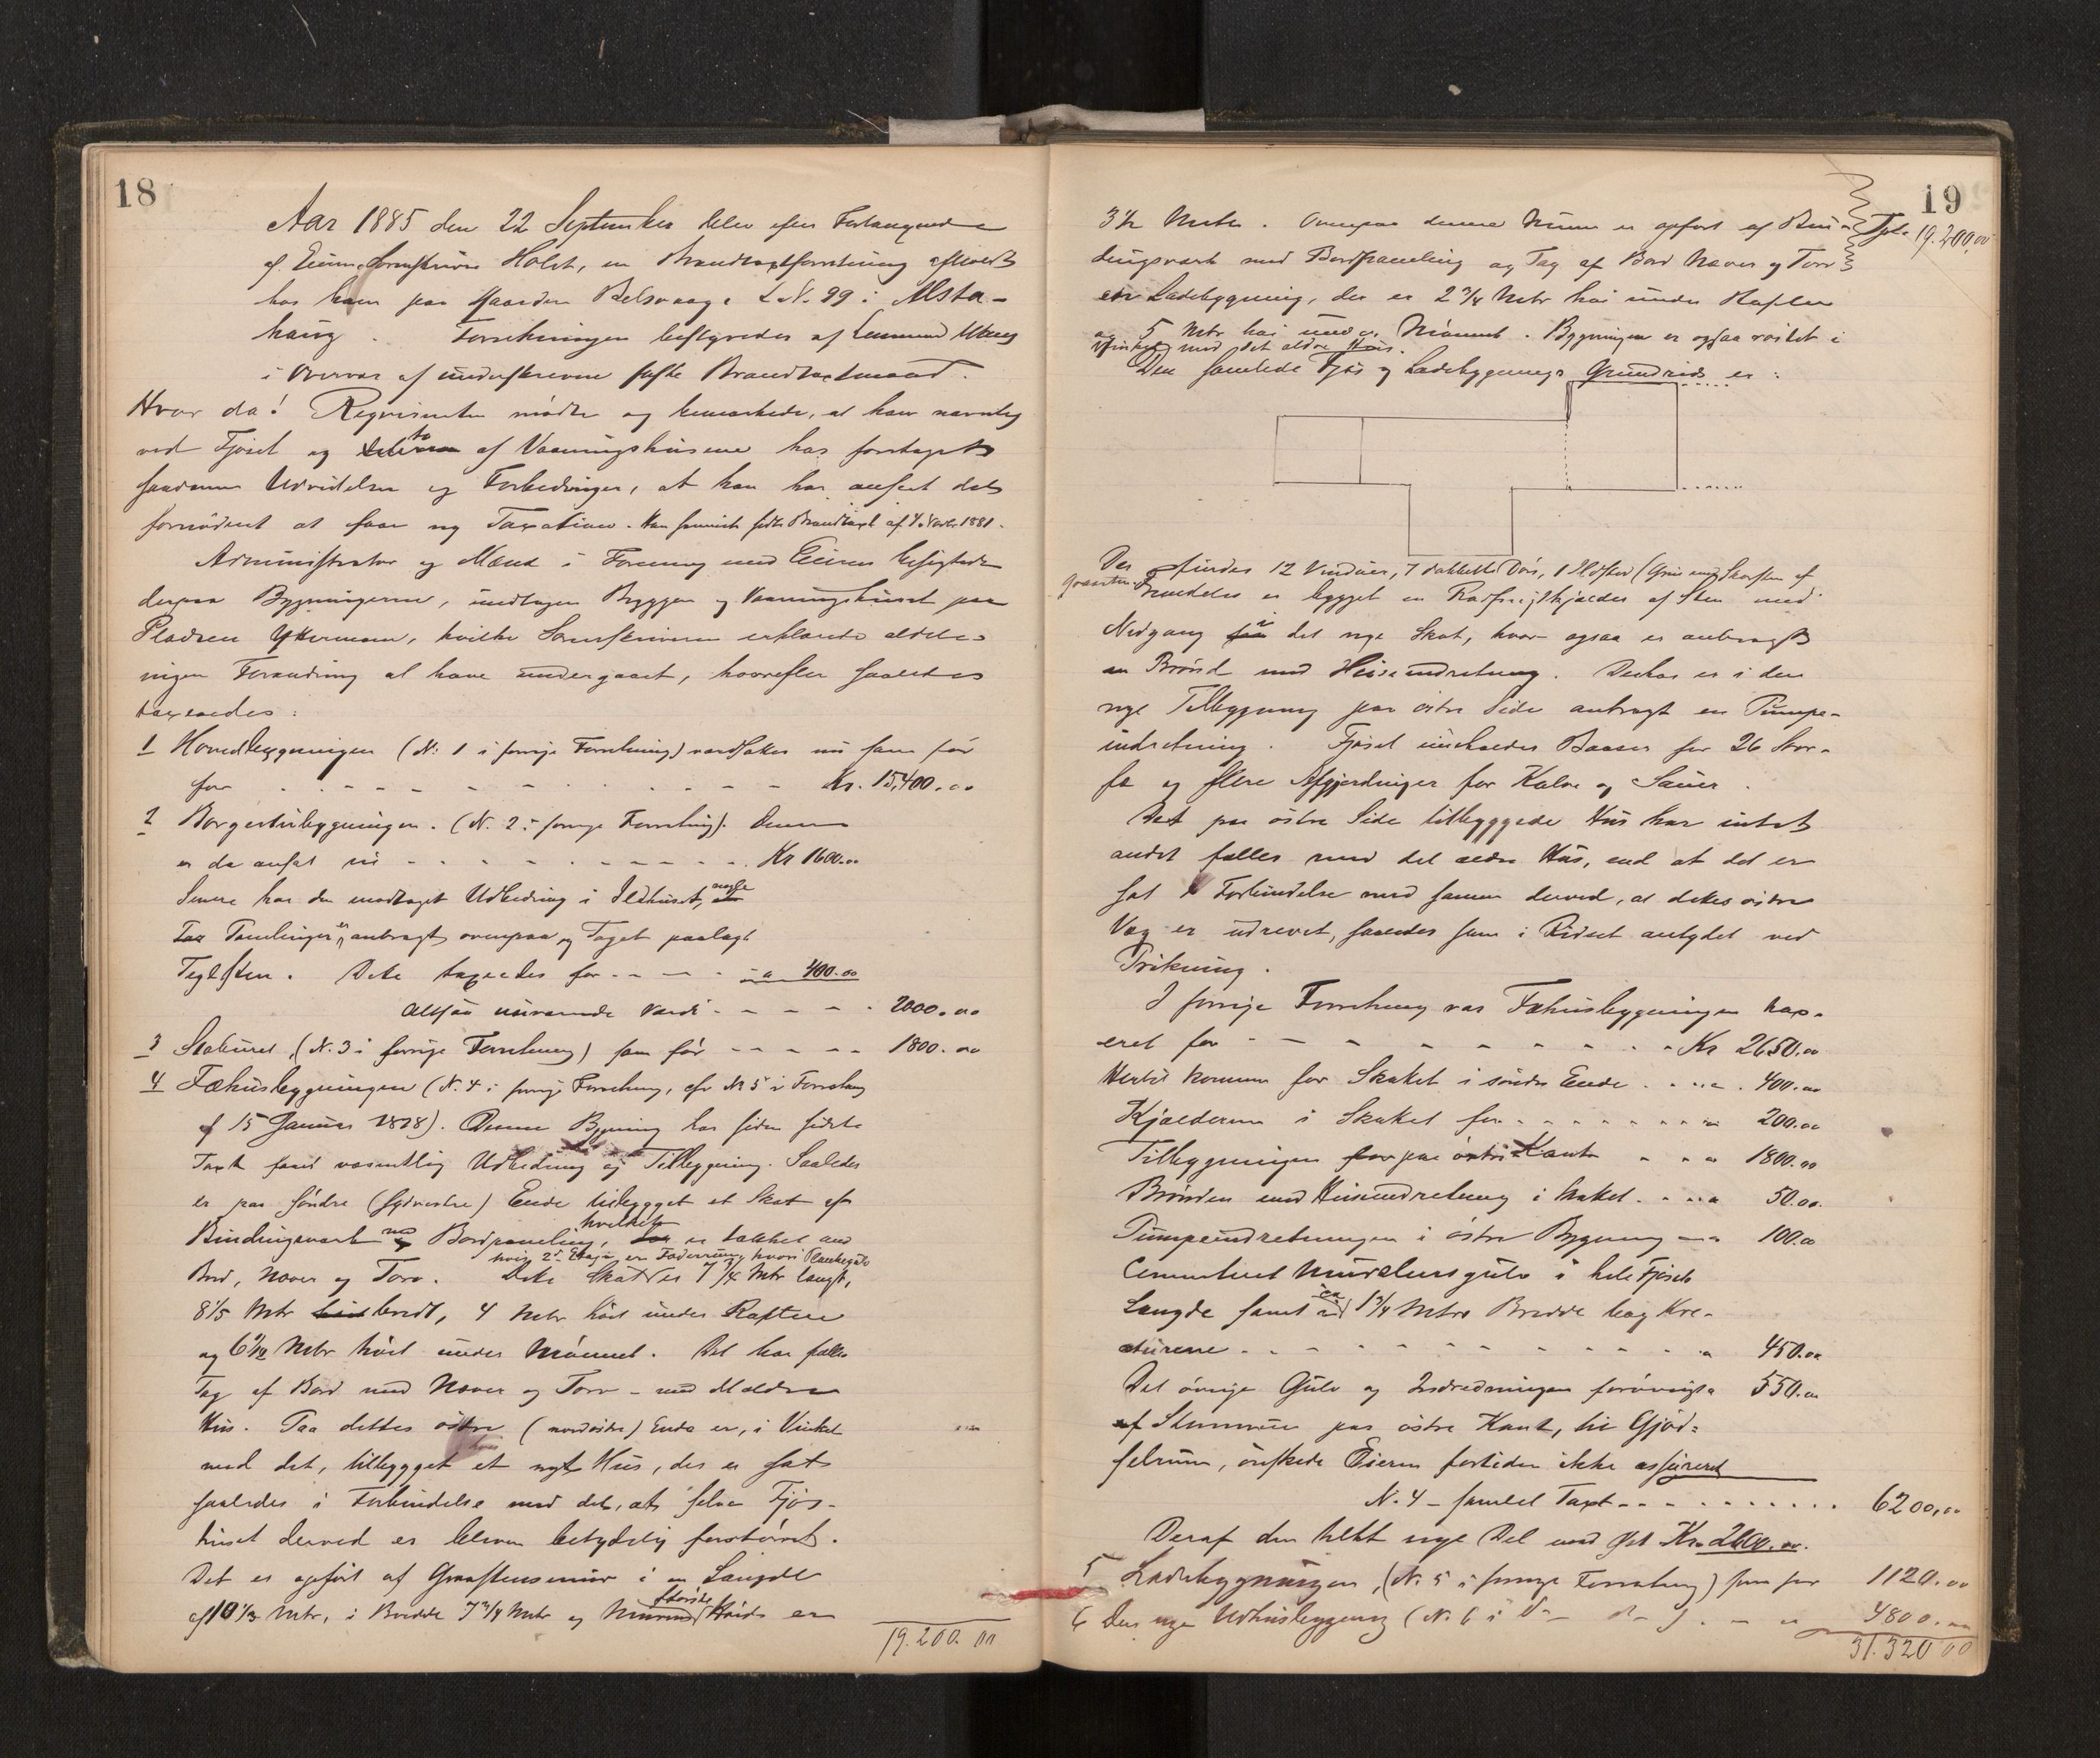 18
Aar 1885 den 22 September blev efter Forlangende
af Eieren, Sorenskriver Holst, en Brandtaxtforretning afholdt
hos ham paa Gaarden Belsvaag L. N. 99 i Alsta-
haug. Forretningen bestyredes af Lensmand
i Overvær af underskrevne faste Brandtaxtmænd.
Hvor da! Reqvirenten mødte og bemærkede, at han navnlig
ved Fjøset og to af Vaaningshusene har foretaget
saadanne Udvidelser og Forbedringer, at han har anseet det
fornødent at faa ny Taxation. Han fremviste sidste Brandtaxt af 1881.
Administrator og Mænd i Forening med Eieren besigtede
derpaa Bygningerne, undtagen Bryggen og Vaaningshuset paa
Pladsen, hvilke Sorenskriveren erklærede aldeles
ingen Forandring at have undergaaet, hvorefter saaledes
taxeredes:
1 Hovedbygningen (N. 1 i forrige Forretning) værdsættes nu som før
for - - - - Kr. 15,400.00
2 Borgestubygningen. (N. 2 i forrige Forretning). Denne
er da ansat til - - - - Kr 1600.00
Senere har den modtaget Udbedring i Ildhuset, nogle
Panelinger er anbragt ovenpaa og Taget paalagt
Teglsten. Dette taxeredes for - - - - " 400.00
altsaa nuværende Værdi - - - - 2000.00
3 Staburet, (N. 3 i forrige Forretning) som før - - - - 1800.00
4 Fæhusbygningen (N. 4 i forrige Forretning, cfr N 5 i Forretning
af 15 Januar 1878). Denne Bygning har siden sidste
Taxt faaet væsentlig Udbedring og Tilbygning. Saaledes
er paa søndre (sydvestre) Ende tilbygget et Skot af
Bindingsværk med Bordpaneling, hvilket er tækket med
hvis 2d Etage er Foderrum, hvori Plankegulv
Bord, Næver og Torv. Dette Skot er 7 1/4 Mtr langt,
8 1/5 Mtr bredt, 4 Mtr høit under Raftene
og 6 1/2 Mtr høit under Mønnet. Det har fælles
Tag af Bord med Næver og Torv - med det ældre
Hus. Paa dettes østre (nordøstre) Ende er, i Vinkel
med det, tilbygget et nyt Hus, der er sat
saaledes i Forbindelse med det, at selve Fjøs-
huset derved er bleven betydelig forstørret.
Det er opført af Graastensmur i en Længde
af 10 1/3 Mtr, i Bredde 7 3/4 Mtr og største Høide er
19.200.00
19
3 1/2 Meter. Ovenpaa denne Muur er opført af Bin-
Tpt. 19.200,00
dingsværk med Bordpaneling og Tag af Bord Næver og Torv
en Ladebygning, der er 2 3/4 Mtr høi under Raften
og 5 Mtr høi under Mønnet. Bygningen er ogsaa reist i
Vinkel med det ældre Hus.
Den samlede Fjøs og Ladebygnings Grundrids er:
Der findes 12 Vinduer, 7 dobbelte Døre, 1 Ildsted (Grue med Skorsten af
graasten. Fremdeles er bygget en Rodfrugtkjælder af Sten med
Nedgang i det nye Skot, hvor ogsaa er anbragt
en Brønd med Heiseindretning. Desuden er i den
nye Tilbygning paa østre Side anbragt en Pumpe-
indretning. Fjøset indeholder Baaser for 26 Stor-
fæ og flere Afgjerdinger for Kalve og Sauer.
Det paa østre Side tilbyggede Hus har intet
andet fælles med det ældre Hus, end at det er
sat i Forbindelse med samme derved, at dettes østre
Væg er udrevet, saaledes som i Ridset antydet ved
Prikning.
I forrige Forretning var Fæhusbygningen tax-
eret for - - - - Kr 2650.00
Hertil kommer for Skottet i søndre Ende - - " 400.00
Kjælderen i Skottet for - - - - " 200.00
Tilbygningen paa østre Kant - - " 1800.00
Brønden med Heiseindretning i Skottet - - " 50.00
Pumpeindretningen i østre Bygning - - 100.00
Cementeret Murstensgulv i hele Fjøsets
Længde samt ca 1 3/4 Mtrs Bredde bag Kre-
aturene - - - - " 450.00
Det øvrige Gulv og Indredningen forøvrigt 550.00
af Stenmuren paa østre Kant, til Gjød-
selrum, ønskede Eieren fortiden ikke assureret
N. 4 - samlet Taxt - - - - 6200,00
Deraf den helt nye Del med Kr. 2600.00.
5 Ladebygningen, (N. 5 i forrige Forretning) som før 1120.00
6 Den nye Udhusbygning (N. 6 i 4800.00
31.320 00